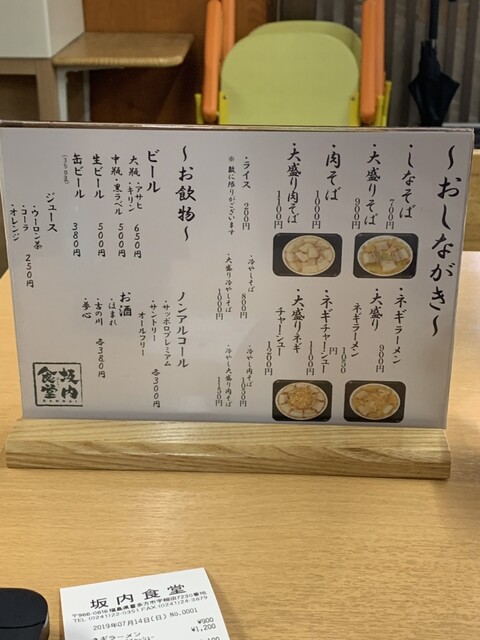 ～おしながき～
・しなそば
700円
・大盛りそば
900円
・肉そば
1000円
・大盛り肉そば
1100円
・ライス 200円
※ 数に限りがございます
・ネギラーメン
900円
・大盛り
ネギラーメン
1050円
・ネギチャーシュー
1100円
・大盛りネギ
チャーシュー
1200円
・冷やしそば
800円
・大盛り冷やしそば
1000円
・冷やし肉そば
・冷やし大盛り肉そば
～お飲物～
ビール
大瓶・アサヒ
・キリン 650円
中瓶・黒ラベル
500円
生ビール 500円
缶ビール 380円
ジュース
・ウーロン茶
・コーラ 250円
・オレンジ
ノンアルコール
・サッポロプレミアム
・サントリー
オールフリー
各300円
お酒
・ほまれ
・吉の川 各380円
・夢心
坂内
食堂
BANNAI
坂内食堂
〒966-0816 福島県喜多方市字細田7230番地
TEL(0241)22-0351 FAX(0241)24-3879
2019年07月14日(日) No.0001
ネギラーメン ¥900
¥1,200